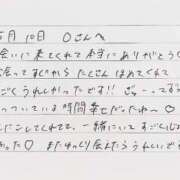 5月10日 Oさんへ
会いに来てくれて本当にありがとう♡
会ってすぐから たくさん ほめてくれて
すごくうれしかったです!! ぎゅーってする
っついている時間幸せだったね〜♡
にこしてくれてて、一緒にいて すごくし
かった♡ またゆっくり会えたらうれしいです